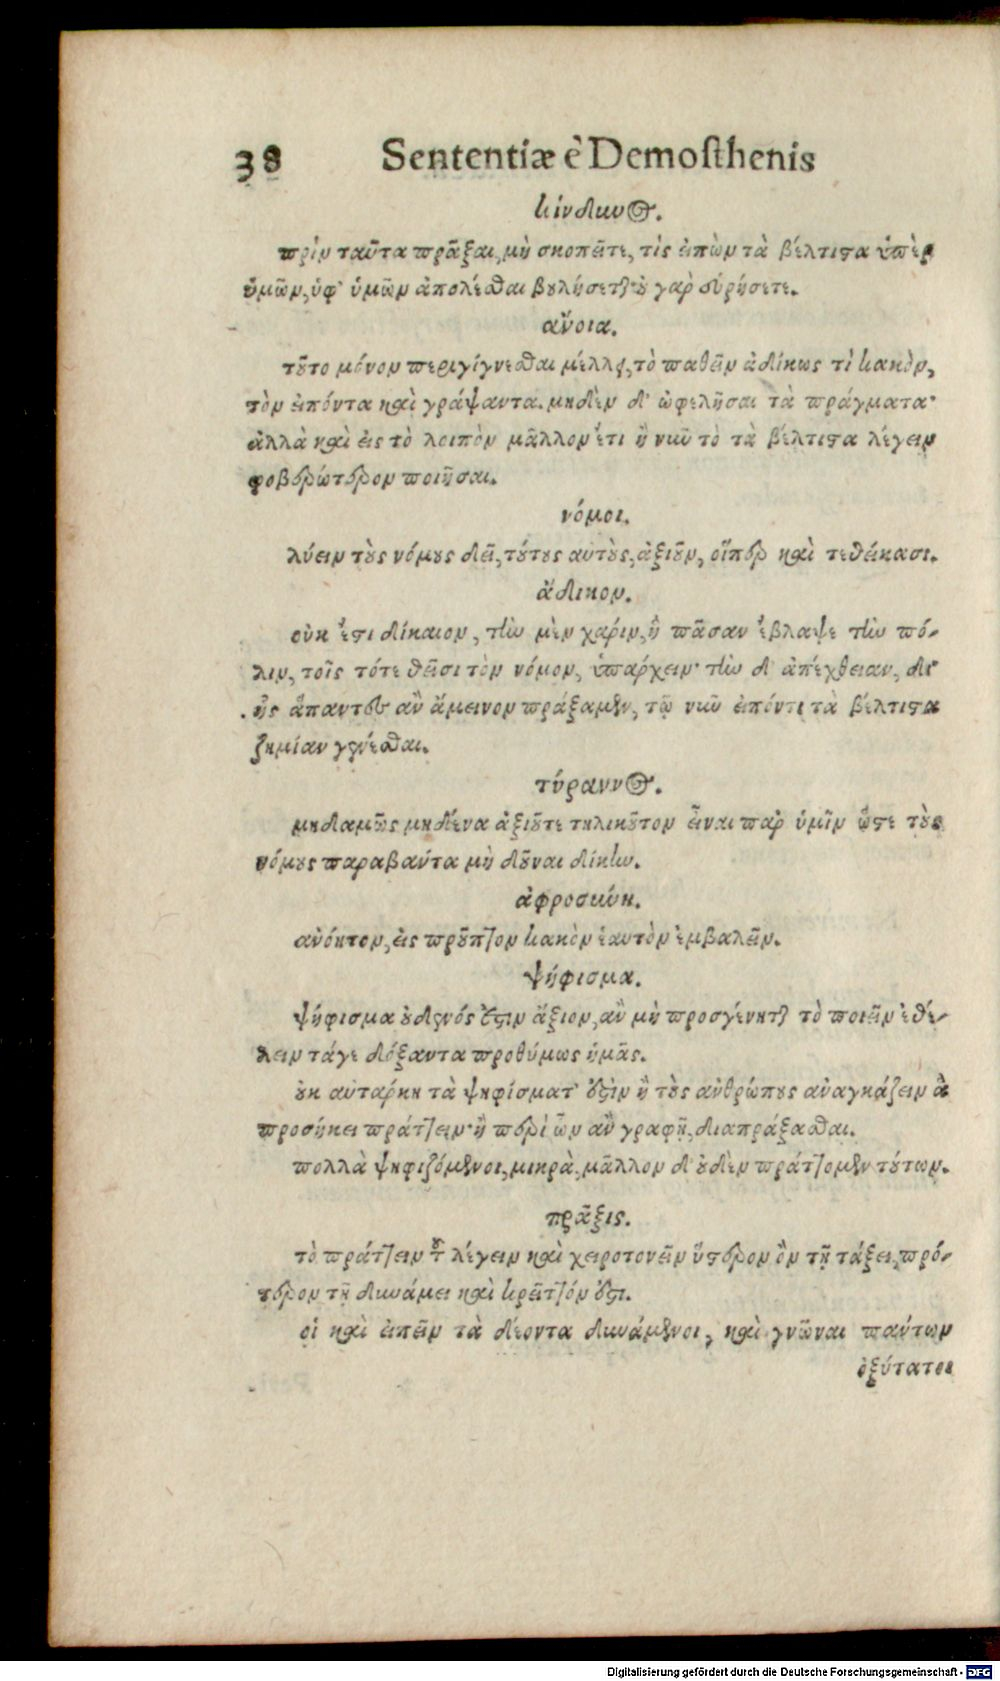 38 Sententiæ è Demoſthenis
κίνδυνος.
πρὶν ταῦτα πρᾶξαι, μὴ σκοπεῖτε, τίς εἰπὼν τὰ βέλτιστα ὑπὲρ
ὑμῶν, ὑφ᾽ ὑμῶν ἀπολέσθαι βουλήσεται· οὐ γὰρ εὑρήσετε.
ἄνοια.
τοῦτο μόνον περιγίγνεσθαι μέλλει, τὸ παθεῖν ἀδίκως τὶ κακὸν,
τὸν εἰπόντα καὶ γράψαντα. μηδὲν δ᾽ ὠφελῆσαι τὰ πράγματα·
ἀλλὰ καὶ εἰς τὸ λοιπὸν μᾶλλον ἔτι ἢ νῦν τὸ τὰ βέλτιστα λέγειν
φοβερώτερον ποιῆσαι.
νόμοι.
λύειν τοὺς νόμους δεῖ, τούτους αὐτοὺς, ἀξιοῦν, οἵπερ καὶ τεθείκασι.
ἄδικον.
οὐκ ἔστι δίκαιον, τὴν μὲν χάριν, ἣ πᾶσαν ἔβλαψε τὴν πό-
λιν, τοῖς τότε θεῖσι τὸν νόμον, ὑπάρχειν· τὴν δ᾽ ἀπέχθειαν, δι᾽
ἧς ἅπαντες ἂν ἄμεινον πράξαμεν, τῷ νῦν εἰπόντι τὰ βέλτιστα
ζημίαν γενέσθαι.
τύραννος.
μηδαμῶς μηδένα ἀξιοῦτε τηλικοῦτον εἶναι παρ᾽ ὑμῖν ὥστε τοὺς
νόμους παραβάντα μὴ δοῦναι δίκην.
ἀφροσύνη.
ἀνόητον, εἰς προῦπτον κακὸν ἑαυτὸν ἐμβαλεῖν.
ψήφισμα.
ψήφισμα οὐδενός ἐστιν ἄξιον, ἂν μὴ προσγένηται τὸ ποιεῖν ἐθέ-
λειν τάγε δόξαντα προθύμως ὑμᾶς.
οὐκ αὐτάρκη τὰ ψηφίσματ᾽ ἐστὶν ἢ τοὺς ἀνθρώπους ἀναγκάζειν ἃ
προσήκει πράττειν· ἢ περὶ ὧν ἂν γραφῇ, διαπράξασθαι.
πολλὰ ψηφιζόμενοι, μικρὰ, μᾶλλον δ᾽ οὐδὲν πράττομεν τούτων.
πρᾶξις.
τὸ πράττειν τοῦ λέγειν καὶ χειροτονεῖν ὕστερον ὂν τῇ τάξει, πρό-
τερον τῇ δυνάμει καὶ κρεῖττόν ἐστι.
οἱ καὶ εἰπεῖν τὰ δέοντα δυνάμενοι, καὶ γνῶναι πάντων
ὀξύτατοι
Digitalisierung gefördert durch die Deutsche Forschungsgemeinschaft - DFG